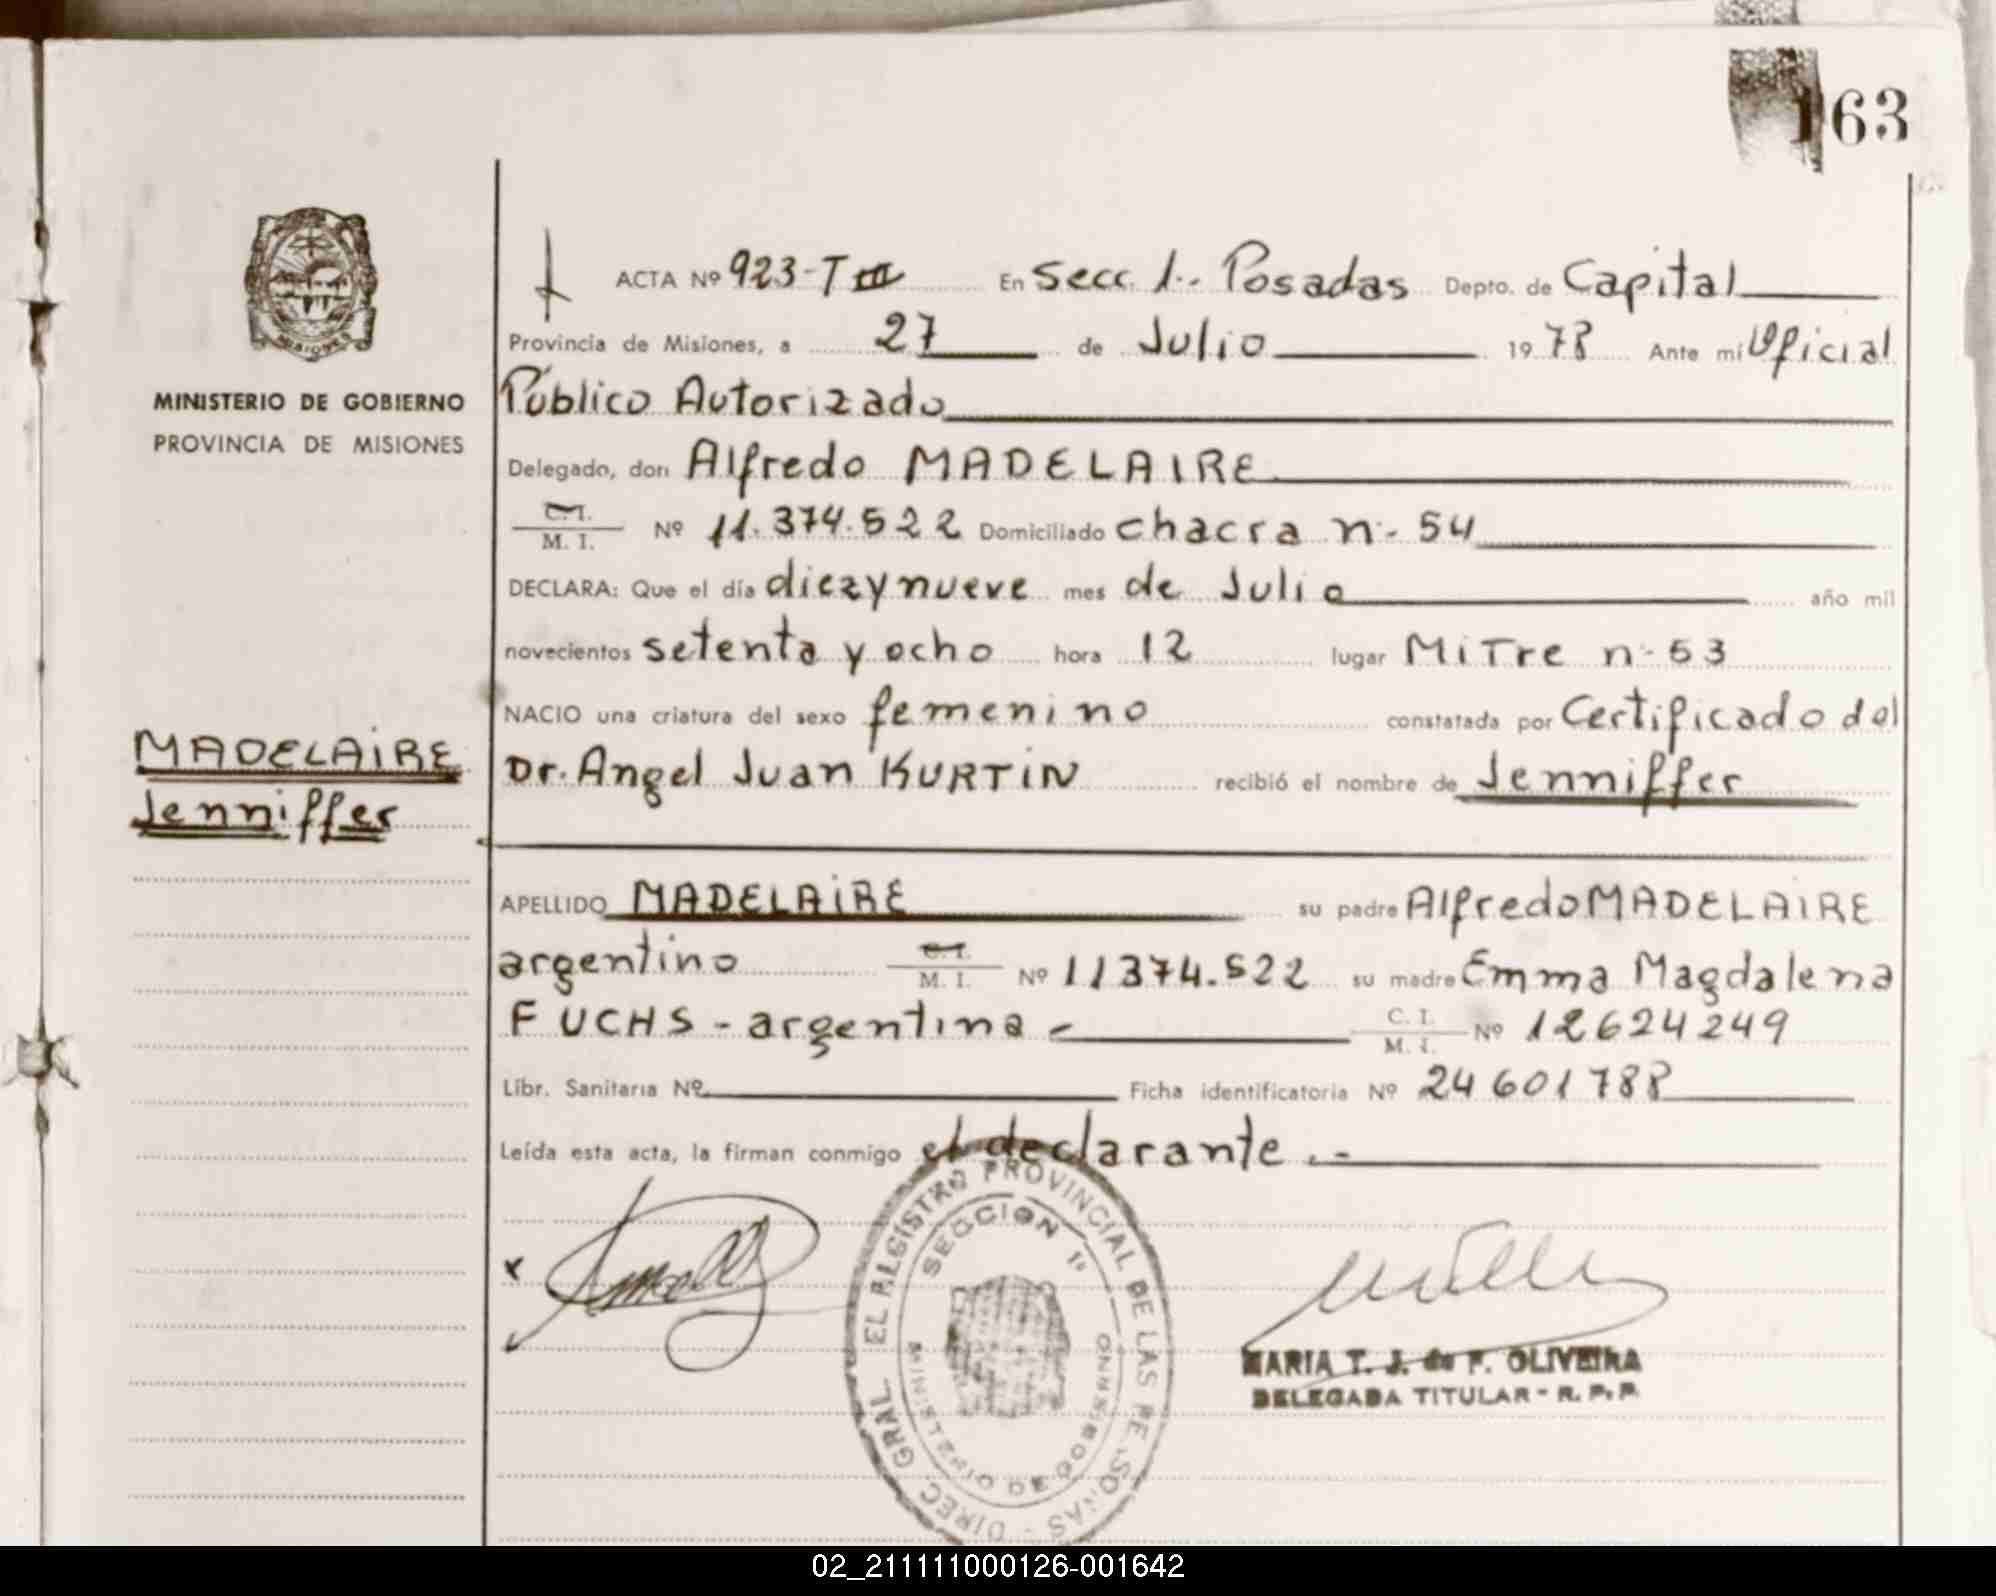 163
ACTA Nº 923-T III En Secc. 1.. Posadas Depto. de Capital
Provincia de Misiones, a 27 de Julio 1978 Ante mi Oficial
MINISTERIO DE GOBIERNO
PROVINCIA DE MISIONES
Público Autorizado
Delegado, don Alfredo MADELAIRE
C. I. M. I. Nº 11.374.522 Domiciliado chacra n.- 54
DECLARA: Que el día diezynueve mes de Julio año mil
novecientos setenta y ocho hora 12 lugar MiTre n.- 53
NACIO una criatura del sexo femenino constatada por Certificado del
MADELAIRE
Jenniffer
Dr. Angel Juan KURTIN recibió el nombre de Jenniffer
APELLIDO MADELAIRE su padre Alfredo MADELAIRE
argentino C. I. M. I. Nº 11374.522 su madre Emma Magdalena
FUCHS - argentina - C. I. M. I. Nº 12624249
Libr. Sanitaria Nº Ficha identificatoria Nº 24601788
Leída esta acta, la firman conmigo el declarante .-
DIREC. GRAL. EL REGISTRO PROVINCIAL DE LAS PERSONAS
SECCION 1º
MINISTERIO DE GOBIERNO
MARIA T. J. de F. OLIVEIRA
DELEGADA TITULAR - R. P. P.
02_211111000126-001642